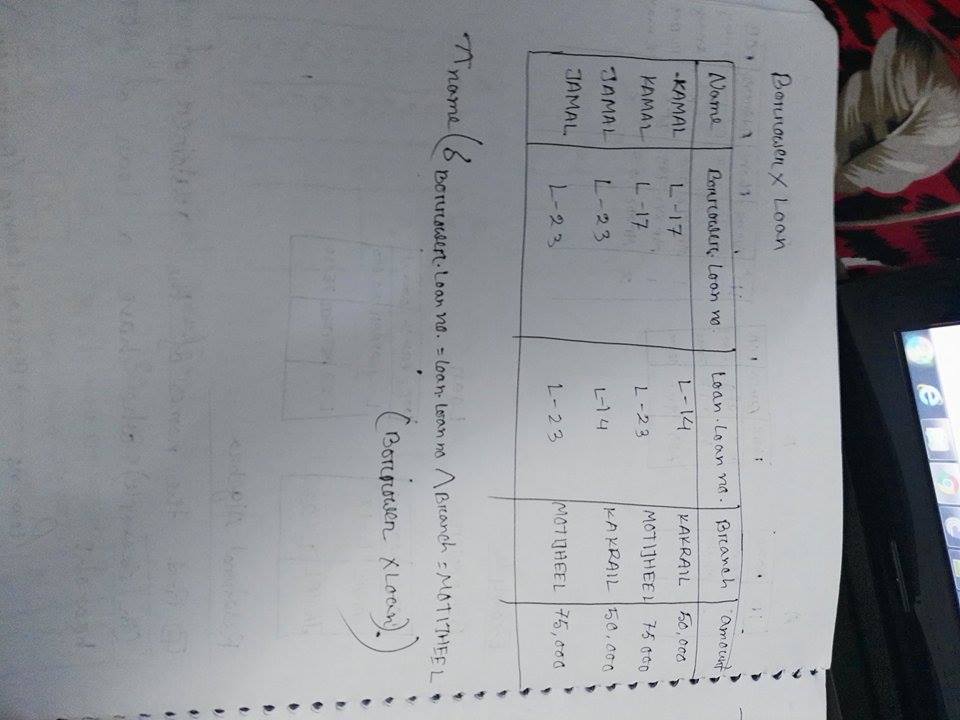 Borrower X Loan
Name Borrower.Loan no. Loan.Loan no. Branch amount
KAMAL L-17 L-14 KAKRAIL 50,000
KAMAL L-17 L-23 MOTIJHEEL 75,000
JAMAL L-23 L-14 KAKRAIL 50,000
JAMAL L-23 L-23 MOTIJHEEL 75,000
π name (σ Borrower.Loan no. = Loan.Loan no ∧ Branch = MOTIJHEEL
(Borrower X Loan).)